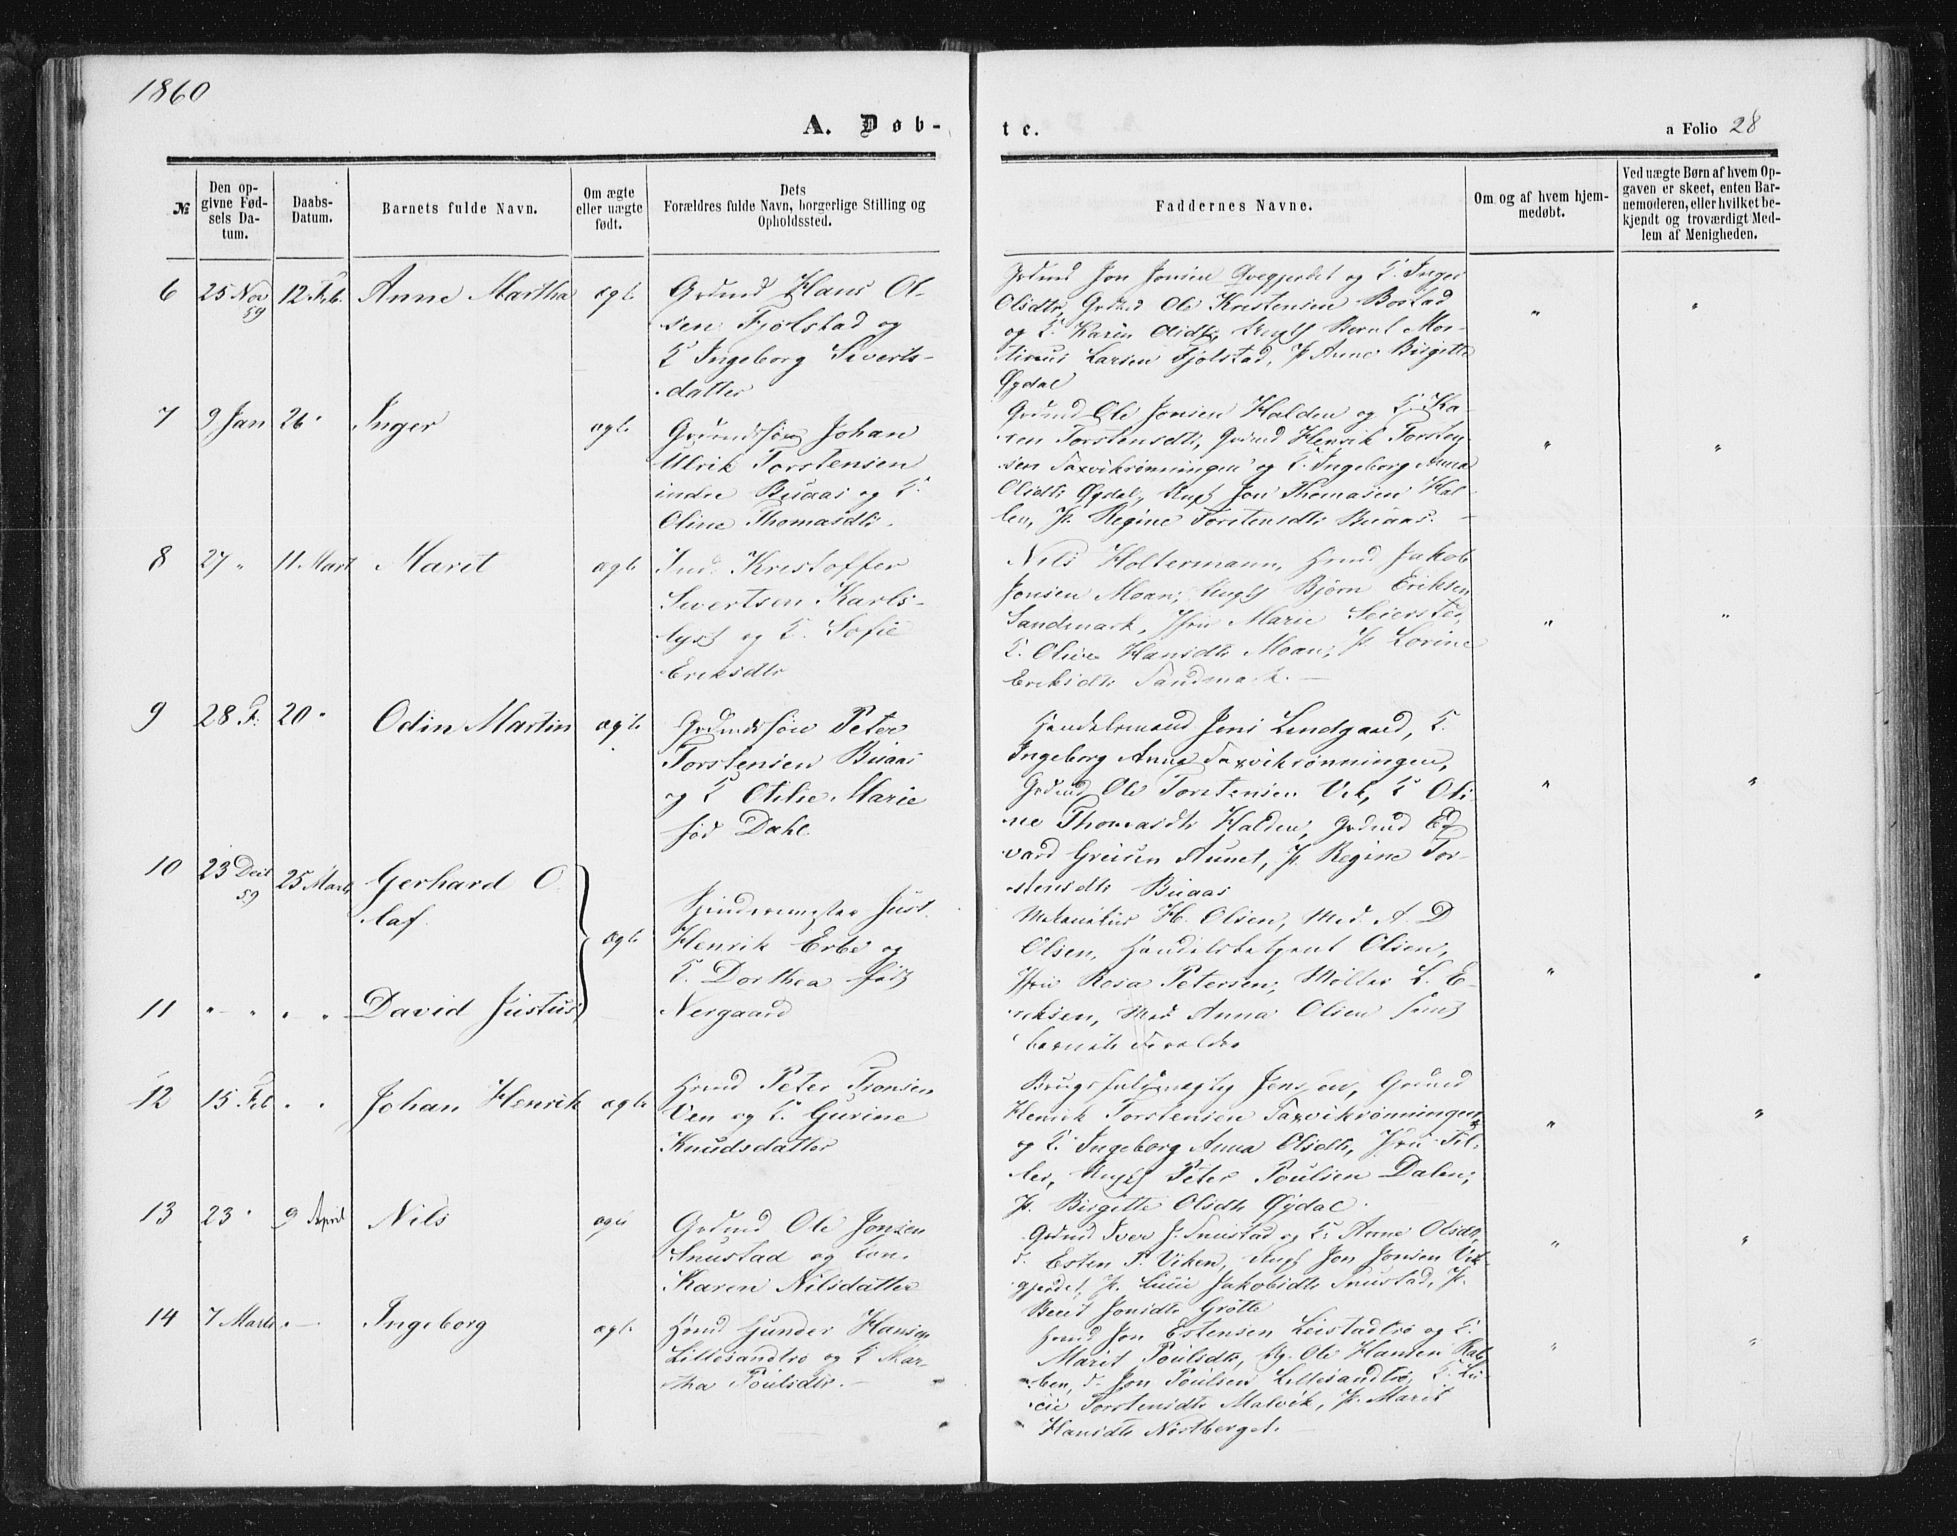 1860
A. Døb-
te.
a Folio 28
№
Den op-
givne Fød-
sels Da-
tum.
Daabs-
Datum.
Barnets fulde Navn.
Om ægte
eller uægte
født.
Dets
Forældres fulde Navn, borgerlige Stilling og
Opholdssted.
Faddernes Navne.
Om og af hvem hjem-
medøbt.
Ved uægte Børn af hvem Op-
gaven er skeet, enten Bar-
nemoderen, eller hvilket be-
kjendt og troværdigt Med-
lem af Menigheden.
6 25 Nov 59 12 Feb. Anne Martha ægte
Grdmd Hans Ol-
sen Fjølstad og
K Ingeborg Siverts-
datter
Grdmd Jon Jonsen Qvegjerdet og K. Inger
Olsdtr, Grdmd Ole Kristensen Bostad
og K. Karen Olsdtr, Ungk Bernt Mor-
tinus Larsen Fjølstad, P. Anne Birgitte
Øydal
" "
7 9 Jan 26 " Inger ægte
Grdmdssøn Johan
Ulrik Torstensen
indre Buaas og K.
Oline Thomasdtr.
Grdmd Ole Jonsen Halden og K. Ka-
ren Torstensdtr, Grdmd Henrik Torsten-
sen Saxvikrønningen og K. Ingeborg Anna
Olsdtr Øydal, Ungk Jon Thomasen Hal-
den, P. Regine Torstensdtr Buaas. -
" "
8 27 " 11 Mart Marit ægte
Ind. Kristoffer
Sivertsen Karls-
lyst og K. Sofie
Eriksdtr
Nils Holtermann, Hmd Jakob
Jonsen Moan; Ungk Bjørn Eriksen
Sandmark, Jfru Marie Seiersted,
K. Oline Hansdtr Moan; P. Lorine
Eriksdtr Sandmark. -
" "
9 28 F. 20 " Odin Martin ægte
Grdmdssøn Peter
Torstensen Buaas
og K Otilie Marie
fød Dahl.
Handelsmand Jens Lindgaard, K.
Ingeborg Anna Saxvikrønningen,
Grdmd Ole Torstensen Vik, K Oli-
ne Thomasdtr Halden, Grdmd Ed-
vard Greisen Aunet, P. Regine Tor-
stensdtr Buaas
" "
10 23 Dec 59 25 Marts Gerhard O-
laf.
ægte
Henrik Erbe og
K. Dorthea født
Nergaard
H. Olsen, Mad. A. D
Olsen, Handelsbetjent Olsen,
Jfru Rosa Petersen; Møller L. E-
riksen, Mad Anna Olsen samt
barnets Forældre
" "
11 " " " " David Justus
12 15 Feb " " Johan Henrik ægte
Hmd Peter Tronsen
Ven og K. Gurine
Knudsdatter
Brugsfuldmægtig Jenssen, Grdmd
Henrik Torstensen Saxvikrønningen
og K. Ingeborg Anna Olsdtr, Jfru Til-
ler, Ungk Peter Poulsen Dalen;
P. Birgitte Olsdtr Øydal.
" "
13 23 " 9 April Nils ægte
Grdmd Ole Jonsen
Snustad og Kon.
Karen Nilsdatter
Grdmd Iver J. Snustad og K. Anne Olsdtr,
d. Esten P. Viken, Ungk Jon Jonsen Vik-
gjerdet, P. Lucie Jakobsdtr Snustad, P.
Berit Jonsdtr Grøtte
" "
14 7 Marts " - Ingeborg ægte
Hmd Gunder Hansen
Lillesandtrø og K Mar-
tha Poulsdtr. -
Hmd Jon Estensen Leistadtrø og K.
Marit Poulsdtr, Ug. Ole Hansen Rab-
ben, d. Jon Poulsen Lillesandtrø, K. Lu-
cie Torstensdtr Malvik, P. Marit
Hansdtr Nostberget. -
" "